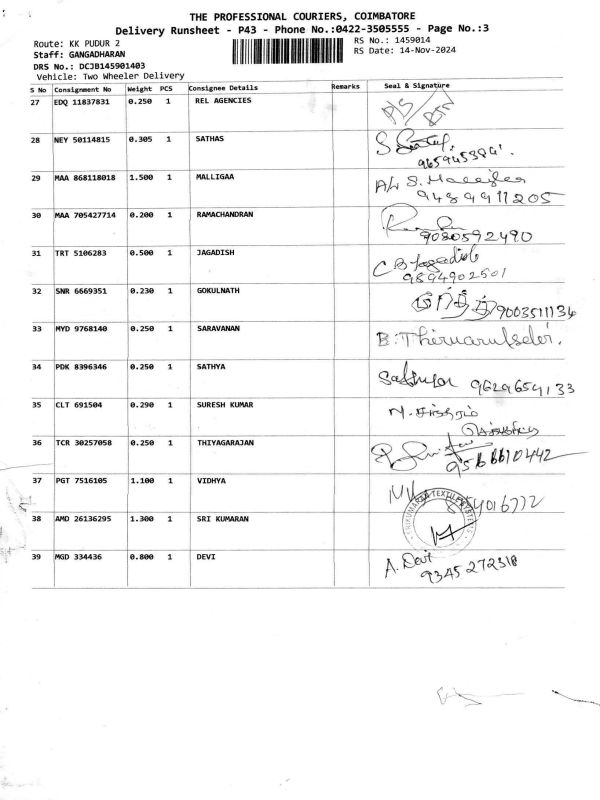 THE PROFESSIONAL COURIERS, COIMBATORE
Delivery Runsheet - P43 - Phone No.:0422-3505555 - Page No.:3
Route: KK PUDUR 2
RS No.: 1459014
Staff: GANGADHARAN
RS Date: 14-Nov-2024
DRS No.: DCJB145901403
Vehicle: Two Wheeler Delivery
S No Consignment No Weight PCS Consignee Details Remarks Seal & Signature
27 EDQ 11837831 0.250 1 REL AGENCIES
28 NEY 50114815 0.305 1 SATHAS
29 MAA 868118018 1.500 1 MALLIGAA
9489911205
30 MAA 705427714 0.200 1 RAMACHANDRAN
9080592490
31 TRT 5106283 0.500 1 JAGADISH C B Jagadish
9894902501
32 SNR 6669351 0.230 1 GOKULNATH
9003511134
33 MYD 9768140 0.250 1 SARAVANAN B. Thiruarutselvi.
34 PDK 8396346 0.250 1 SATHYA 9629659133
35 CLT 691504 0.290 1 SURESH KUMAR
36 TCR 30257058 0.250 1 THIYAGARAJAN
9566610442
37 PGT 7516105 1.100 1 VIDHYA
38 AMD 26136295 1.300 1 SRI KUMARAN
39 MGD 334436 0.800 1 DEVI A. Devi
9345272318